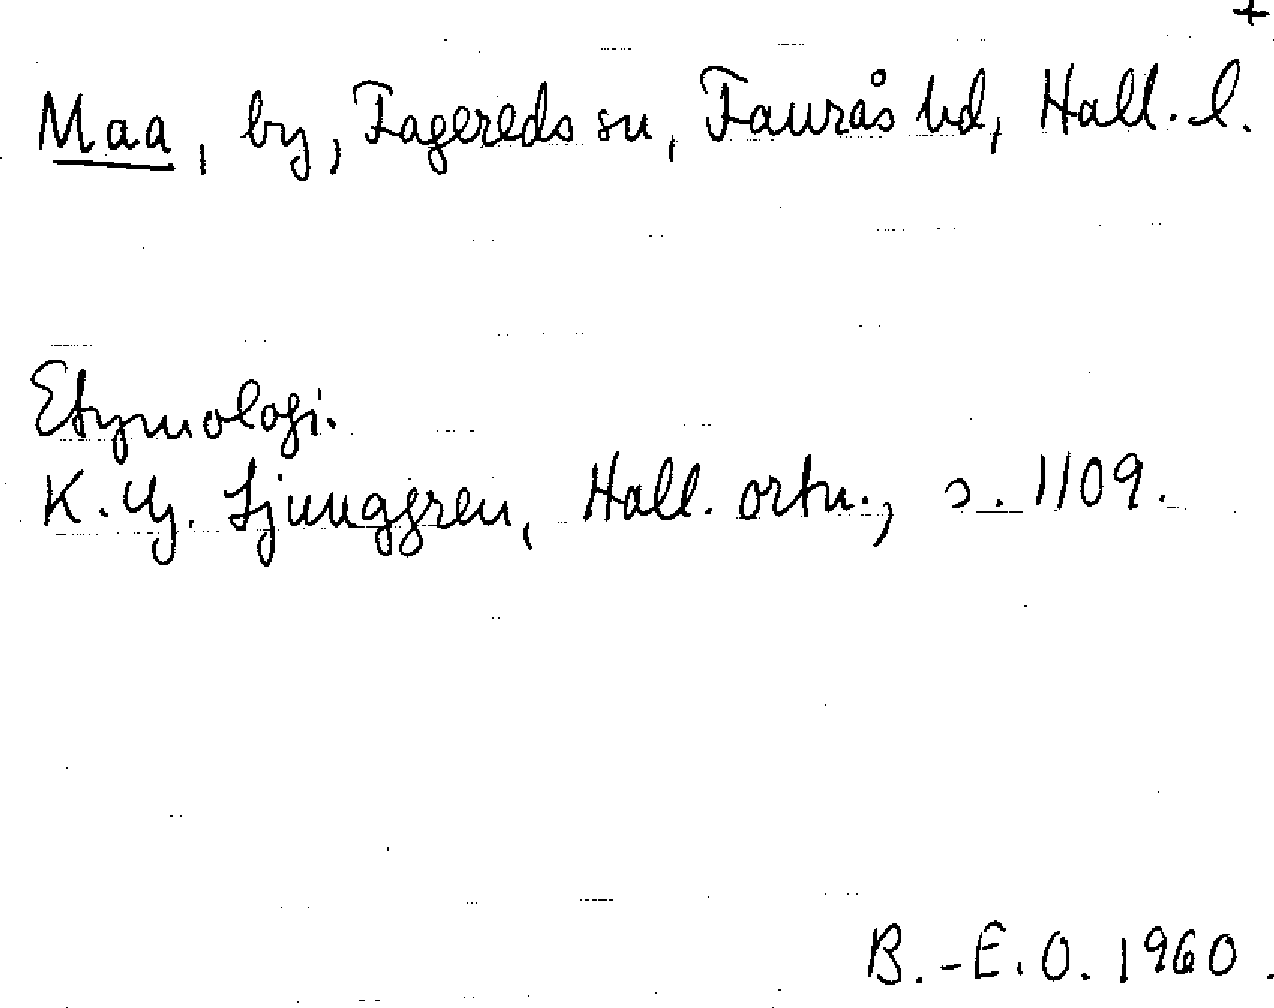 +
Maa, by, Fagereds sn, Faurås hd, Hall. l.
Etymologi.
K. G. Ljunggren, Hall. ortn., s. 1109.
B.-E.O. 1960.